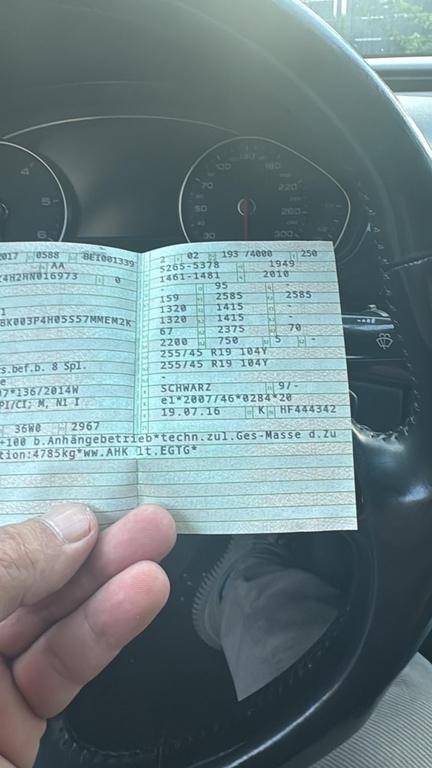 4
5
6
30
50
70
100
140
180
220
260
300
2017 0588 8EI001339
AA
Z4H2HN016973 0
1
8K003P4H05S57MMEM2K
s.bef.b. 8 Spl.
e
07*136/2014W
PI/CI; M, N1 I
36W0 2967
+100 b.Anhängebetrieb*techn.zul.Ges-Masse d.Zu
tion:4785kg*ww.AHK lt.EGTG*
2 02 193 /4000 250
5265-5378 1949
1461-1481 2010
- 95 -
159 2585 2585
1320 1415 -
1320 1415 -
67 2375 70
2200 750 5 -
255/45 R19 104Y
255/45 R19 104Y
-
SCHWARZ 9/-
e1*2007/46*0284*20
19.07.16 K HF444342